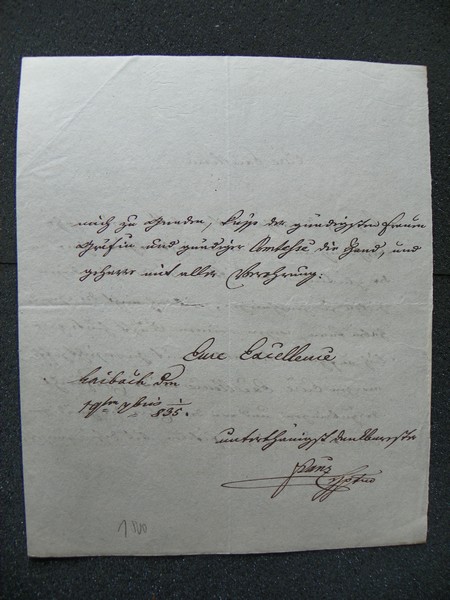 mich zu Gnaden, küsse der gnädigsten Frauen
Gräfin und gnädiger Comtesse die Hand, und
geharre mit aller Verehrung.
Eure Excellence
Laibach den
19ten 835.
unterthänigst dankbarster
Franz